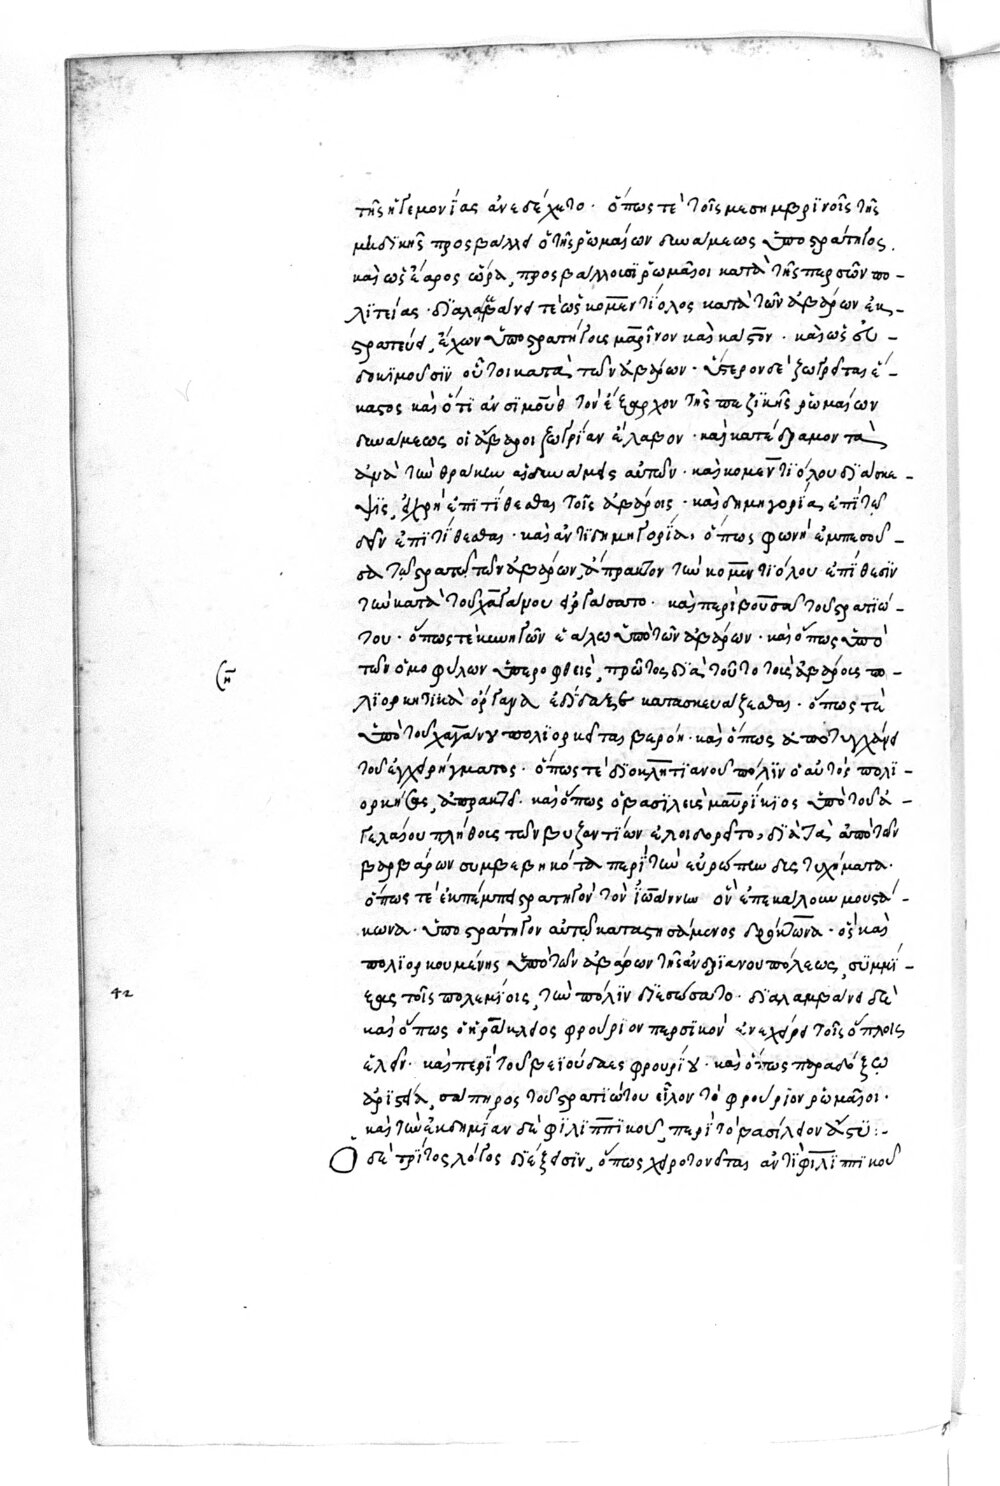 τῆς ἡγεμονίας ἀνεδέχετο· ὅπως τὲ τοῖς μεσημβρϊνοῖς τῆς
μηδικῆς προσβάλλει ὁ τῆς ῥωμαίων δυνάμεως ὑποστράτηγος,
καὶ ὡς ἔαρος ὥρα, προσβάλλουσι ῥωμαῖοι κατὰ τῆς περσῶν πο-
λϊτείας· διαλαμβάνει τὲ ὡς κομεντίολος κατὰ τῶν ἀβάρων ἐκ-
στρατεύει, ἔχων ὑποστρατήγους μαρτῖνον καὶ κάστον· καὶ ὡς εὐ-
δοκϊμοῦσϊν οὗτοι κατὰ τῶν ἀβάρων· ὕστερον δὲ ζωγρεῖται ὁ
κάστος καὶ ὅτϊ ἀνσϊμοὺθ τὸν ἔξαρχον τῆς πεζϊκῆς ῥωμαίων
δυνάμεως οἱ ἄβαροι ζωγρίαν ἔλαβον· καὶ κατέδραμον τὰ
ἀνὰ τὴν θράκην αἱ δυνάμεις αὐτῶν· καὶ κομεντϊόλου διάσκε-
ψϊς, εἰ χρὴ ἐπϊτίθεσθαι τοῖς ἀβάροις· καὶ δημηγορία ἐπὶ τῷ
δεῖν ἐπϊτίθεσθαι· καὶ ἀντϊδημηγορία, ὅπως φωνὴ ἐμπεσοῦ-
σα τῷ στρατῷ τῶν ἀβάρων, ἄπρακτον τὴν κομεντϊόλου ἐπίθεσϊν
τὴν κατὰ τοῦ χαγάνου εἰργάσατο· καὶ περὶ βουσᾶ τοῦ στρατϊώ-
του· ὅπως τὲ κυνηγῶν ἑάλω ὑπὸ τῶν ἀβάρων· καὶ ὅπως ὑπὸ
τῶν ὁμοφύλων ὑπεροφθεὶς, πρῶτος διὰ τοῦτο τοὺς ἀβάρους πο-
λϊορκητϊκὰ ὄργανα ἐδίδαξε κατασκευάζεσθαι· ὅπως τὲ
ὑπὸ τοῦ χαγάνου πολϊορκεῖται βερόη· καὶ ὅπως ἀποτυγχάνει
τοῦ ἐγχειρήματος· ὅπως τὲ διοκλητϊανοῦ πόλϊν ὁ αὐτὸς πολϊ-
ορκήσας, ἀπρακτεῖ· καὶ ὅπως ὁ βασϊλεὺς μαυρίκϊος ὑπὸ τοῦ ἀ-
γελαίου πλήθους τῶν βυζαντίων ἐλοιδορεῖτο, διὰ τὰ ἀπὸ τῶν
βαρβάρων συμβεβηκότα περὶ τὴν εὐρώπην δυστυχήματα·
ὅπως τὲ ἐκπέμπει στρατηγὸν τὸν ἰωάννην ὃν ἐπεκάλουν μουστά-
κωνα· ὑποστράτηγον αὐτῷ καταστησάμενος δρόκτωνα· ὃς καὶ
πολϊορκουμένης ὑπὸ τῶν ἀβάρων τῆς ἀνδρϊανουπόλεως, συμμί-
ξας τοῖς πολεμίοις, τὴν πόλϊν διεσώσατο· διαλαμβάνει δὲ
καὶ ὅπως ὁ ἡράκλειος φρούριον περσϊκὸν ἐνεχείρει τοῖς ὅπλοις
ἑλεῖν· καὶ περὶ τοῦ βεϊούδαες φρουρίου· καὶ ὅπως παραδόξῳ
ἀρϊστείᾳ, σαπῆρος τοῦ στρατϊώτου εἷλον τὸ φρούριον ῥωμαῖοι·
καὶ τὴν ἐκδημίαν δὲ φϊλϊππϊκοῦ, περὶ τὸ βασίλειον ἄστυ:-
Ὁ δὲ τρίτος λόγος διέξεισϊν, ὅπως χειροτονεῖται ἀντὶ φϊλϊππϊκοῦ
42